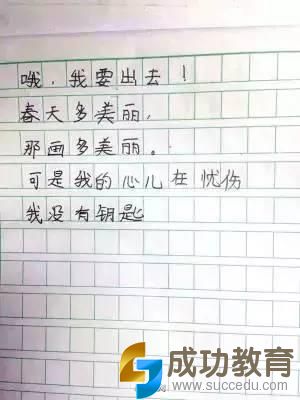 哦，我要出去！
春天多美丽，
那画多美丽。
可是我的心儿在忧伤
我没有钥匙
成功教育
www.succedu.com